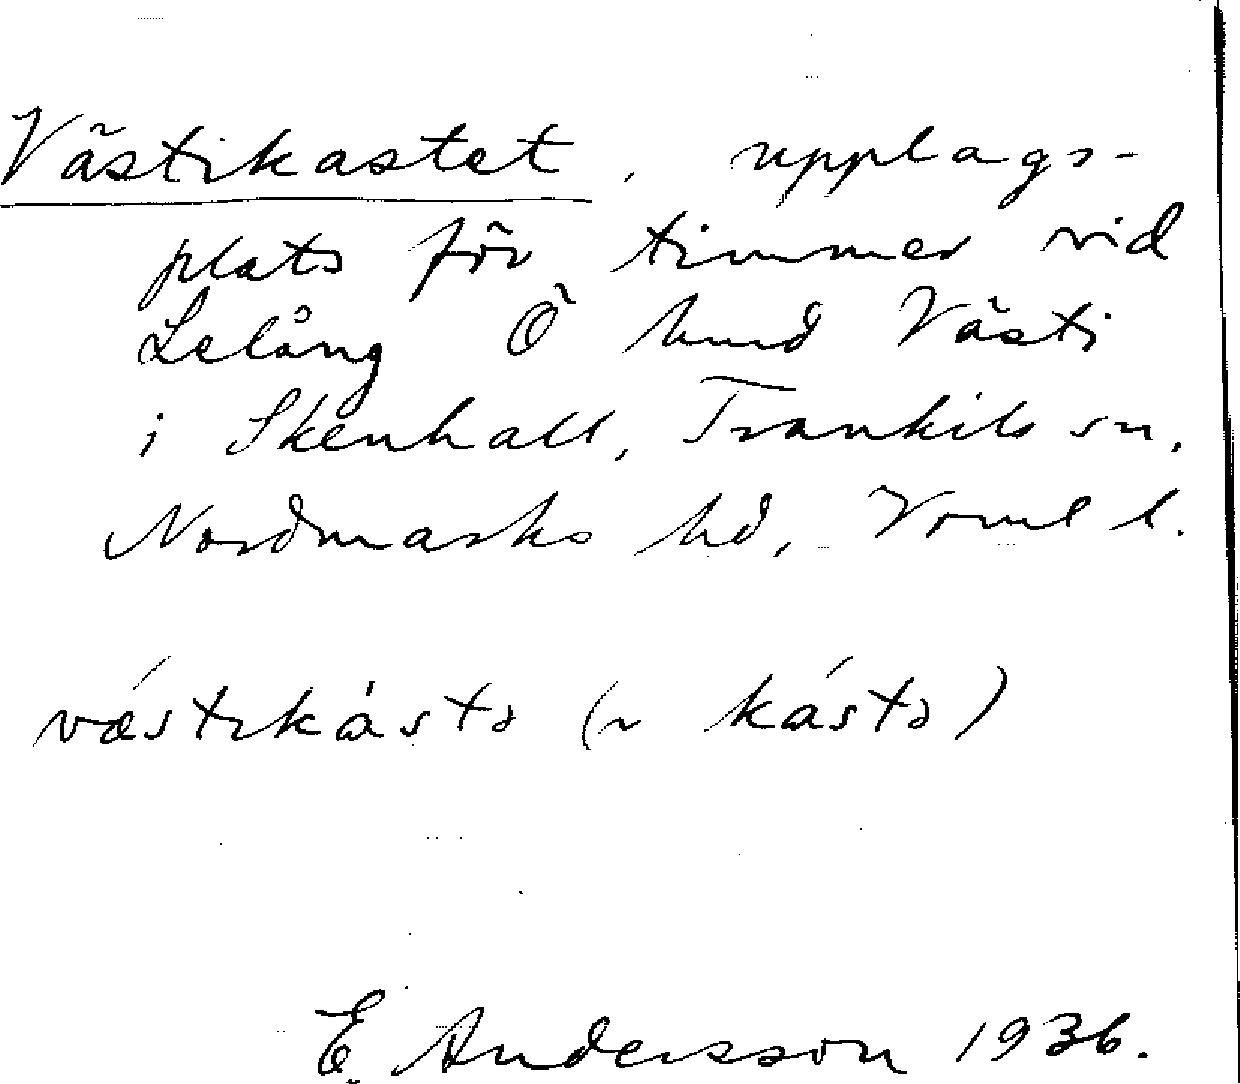 Västikastet, upplags-
plats för timmer vid
Lelång Ö hmd Västi
i Skenhall, Trankils sn,
Nordmarks hd, Vrml l.
vǽstıkȧstə (~ kástə)
E. Andersson 1936.